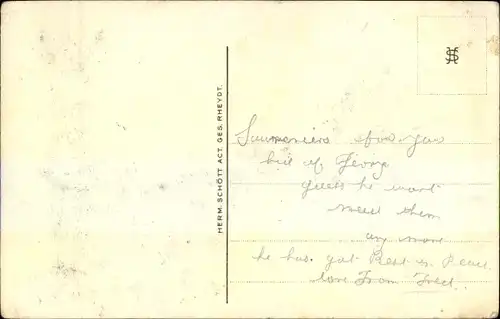 HERM. SCHÖTT ACT. GES. RHEYDT.
HS
Souveneirs for you
bill of George
guess he wont
need them
any more
he has got Rest in Peace
love From Fred.